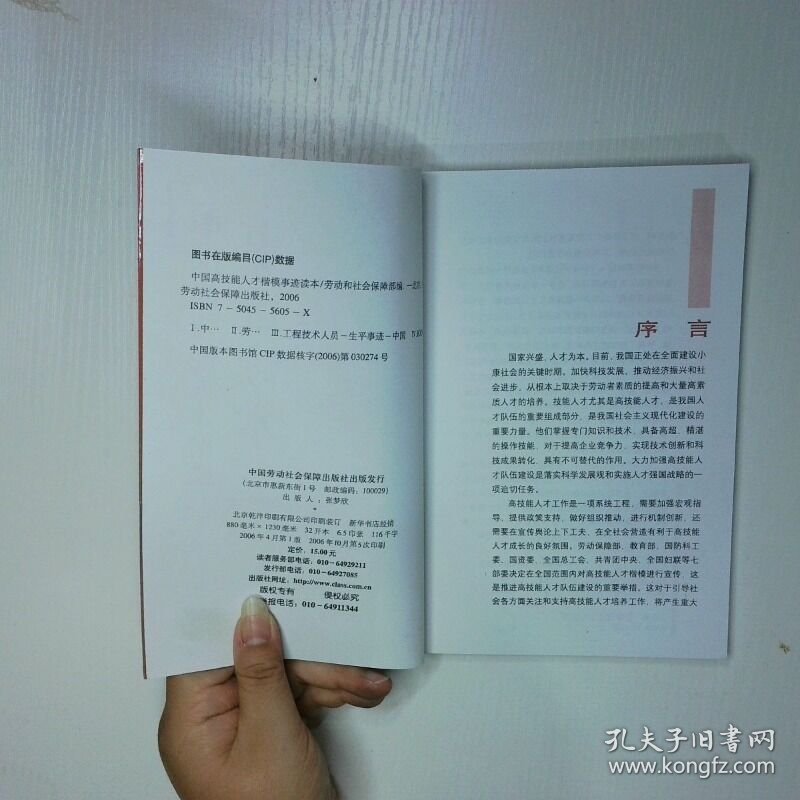 图书在版编目(CIP)数据
中国高技能人才楷模事迹读本/劳动和社会保障部编.—北京:
劳动社会保障出版社, 2006
ISBN 7-5045-5605-X
Ⅰ.中… Ⅱ.劳… Ⅲ.工程技术人员-生平事迹-中国
中国版本图书馆CIP数据核字(2006)第030274号
中国劳动社会保障出版社出版发行
(北京市惠新东街1号 邮政编码:100029)
出版人:张梦欣
北京乾沣印刷有限公司印刷装订 新华书店经销
880毫米×1230毫米 32开本 6.5印张 116千字
2006年4月第1版 2006年10月第5次印刷
定价:15.00元
读者服务部电话:010-64929211
发行部电话:010-64927085
出版社网址:http://www.class.com.cn
版权专有 侵权必究
报电话:010-64911344
序言
国家兴盛,人才为本。目前,我国正处在全面建设小
康社会的关键时期。加快科技发展、推动经济振兴和社
会进步,从根本上取决于劳动者素质的提高和大量高素
质人才的培养。技能人才尤其是高技能人才,是我国人
才队伍的重要组成部分,是我国社会主义现代化建设的
重要力量。他们掌握专门知识和技术,具备高超、精湛
的操作技能,对于提高企业竞争力、实现技术创新和科
技成果转化,具有不可替代的作用。大力加强高技能人
才队伍建设是落实科学发展观和实施人才强国战略的一
项迫切任务。
高技能人才工作是一项系统工程,需要加强宏观指
导、提供政策支持,做好组织推动,进行机制创新,还
需要在宣传舆论上下工夫,在全社会营造有利于高技能
人才成长的良好氛围。劳动保障部、教育部、国防科工
委、国资委、全国总工会、共青团中央、全国妇联等七
部委决定在全国范围内对高技能人才楷模进行宣传,这
是推进高技能人才队伍建设的重要举措。这对于引导社
会各方面关注和支持高技能人才培养工作,将产生重大
孔夫子旧书网
www.kongfz.com